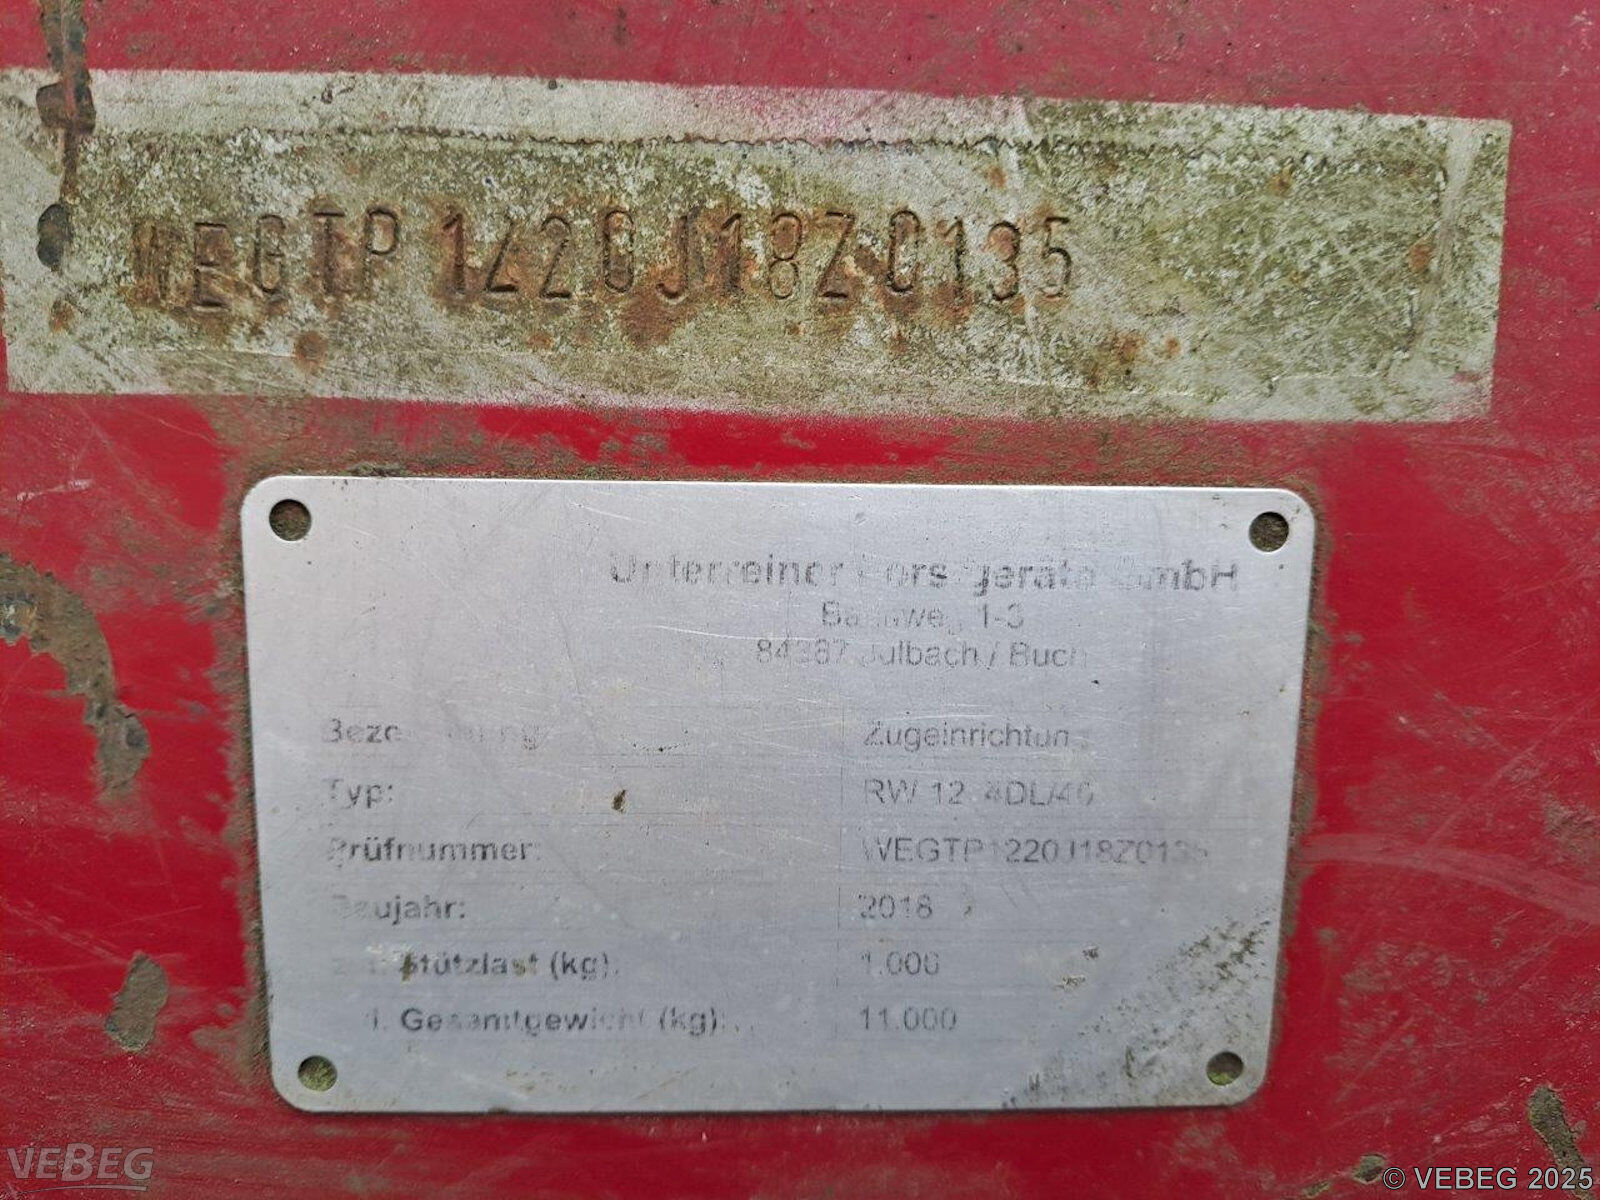 WEGTP1220J18Z0135
Unterreiner Forstgeräte GmbH
1-3
Julbach / Buch
Bezeichnung: Zugeinrichtung
Typ: RW 12
Prüfnummer: WEGTP1220J18Z0135
Baujahr: 2018
Stützlast (kg): 1.000
Gesamtgewicht (kg): 11.000
VEBEG
© VEBEG 2025